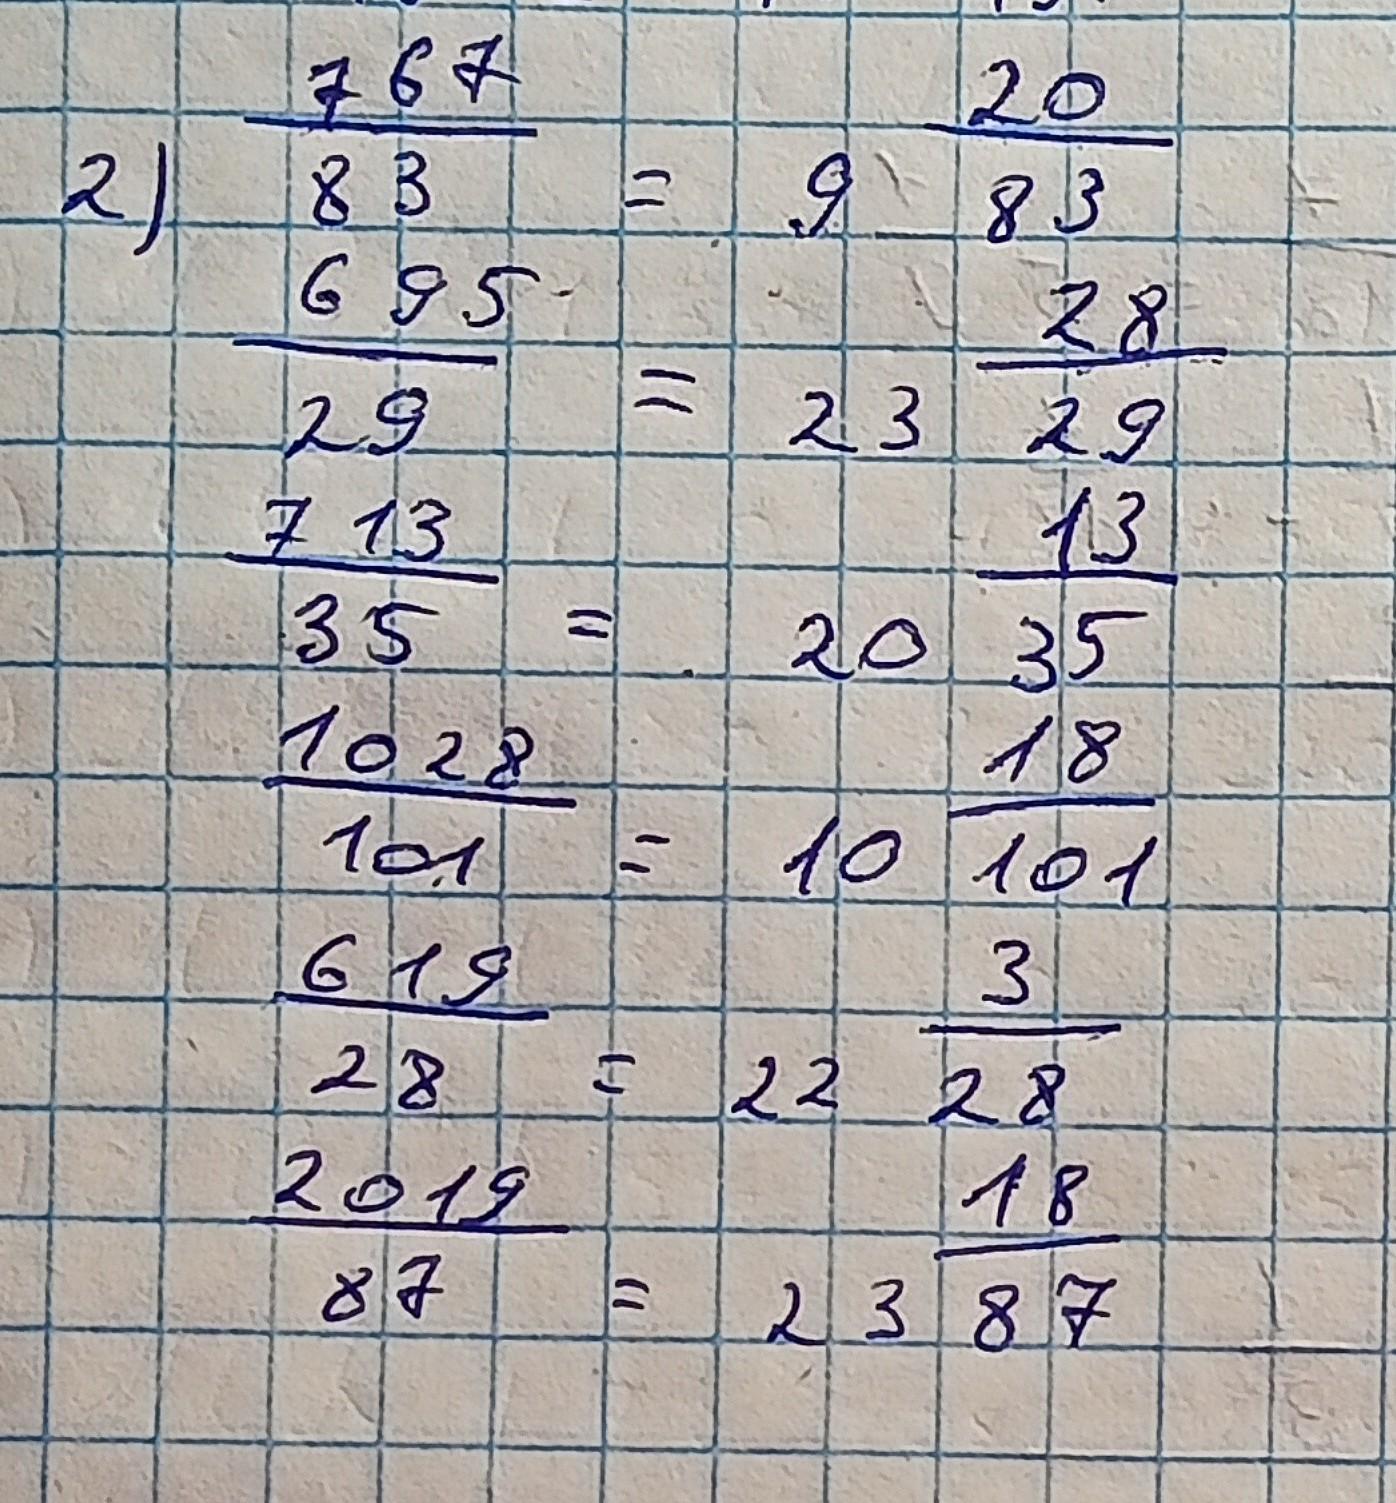 2) 767/83 = 9 20/83
695/29 = 23 28/29
713/35 = 20 13/35
1028/101 = 10 18/101
619/28 = 22 3/28
2019/87 = 23 18/87